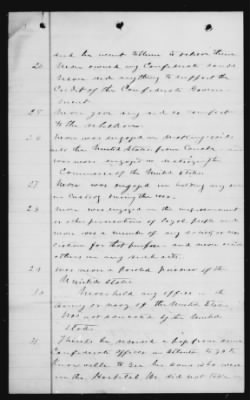 and he went to them to relieve them
24 Never owned any Confederate bonds
Never did anything to support the
Credit of the Confederate Govern-
ment.
25 Never gave any aid or comfort
to the rebellion
26 Never was engaged in making raids
into the United States from Canada
was never engaged in destroying the
Commerce of the United States
27 Never was engaged in holding any one
in Custody during the war
28 Never was engaged in the imprisonment
or other persecution of Loyal people and
never was a member of any society or asso
ciation for that purpose and never aided
others in any such acts.
29 Was never a paroled prisoner of the
United States
30 Never held any office in the
Army or navy of the United States
Was not educated by the United
States
31 Thinks he received a pass from some
Confederate officer in Atlanta to go to
Knoxville to see his sons who were
in the Hospital. He did not take an